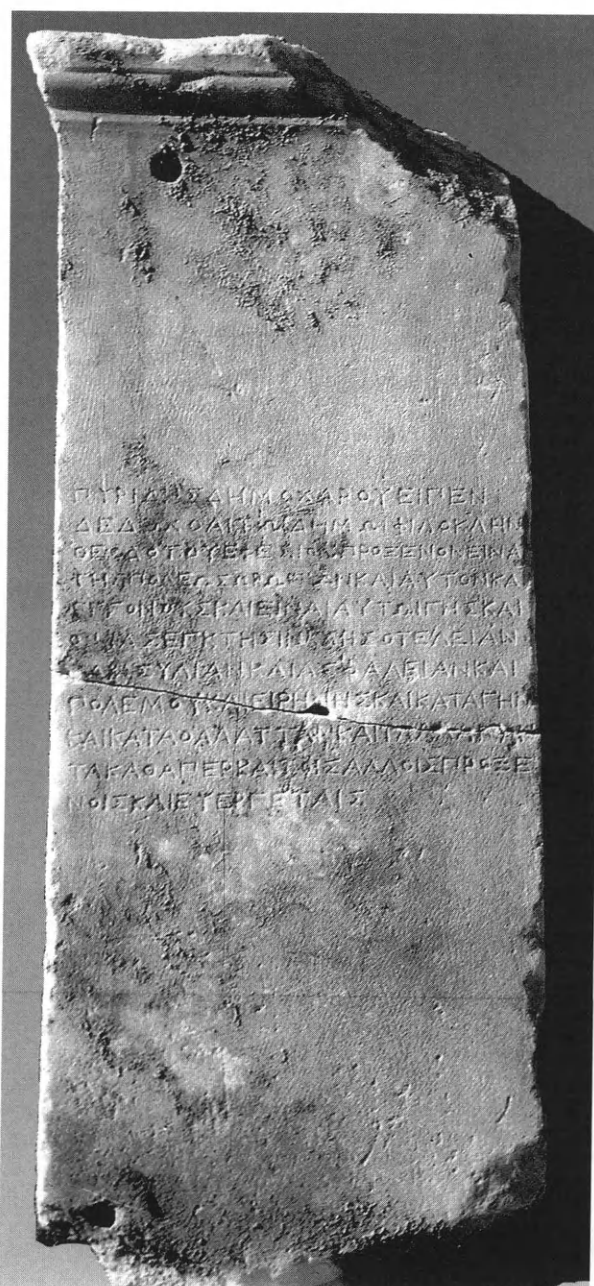 ΠΥΡΙΔΗΣΔΗΜΟΧΑΡΟΥΕΙΠΕΝ
ΔΕΔΟΧΘΑΙΤΩΙΔΗΜΩΙΦΙΛΟΚΛΗΝ
ΘΕΟΔΟΤΟΥ ΠΡΟΞΕΝΟΝΕΙΝΑ
ΤΗΣΠΟΛΕΩΣΩΡΩΠΙΩΝΚΑΙΑΥΤΟΝΚΑ
ΕΓΓΟΝΟΥΣΚΑΙΕΙΝΑΙΑΥΤΩΙΓΗΣΚΑΙ
ΟΙΚΙΑΣΕΓΚΤΗΣΙΝΚΑΙΙΣΟΤΕΛΕΙΑΝ
ΚΑΙΑΣΥΛΙΑΝΚΑΙΑΣΦΑΛΕΙΑΝΚΑΙ
ΠΟΛΕΜΟΥΚΑΙΕΙΡΗΝΗΣΚΑΙΚΑΤΑΓΗΝ
ΚΑΙΚΑΤΑΘΑΛΑΤΤΑΝΚΑΙΤΑΑΛΛΑΠΑΝ
ΤΑΚΑΘΑΠΕΡΚΑΙΤΟΙΣΑΛΛΟΙΣΠΡΟΞΕ
ΝΟΙΣΚΑΙΕΥΕΡΓΕΤΑΙΣ